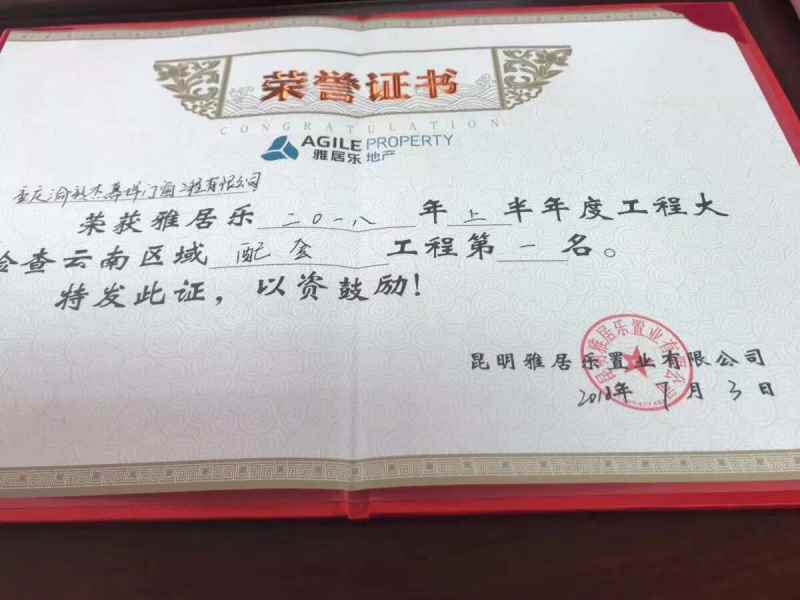 荣誉证书
CONGRATULATION
AGILE PROPERTY
雅居乐 地产
门窗工程有限公司
荣获雅居乐 二〇一八 年 上 半年度工程大
检查云南区域 配套 工程第 一 名。
特发此证，以资鼓励!
昆明雅居乐置业有限公司
2018年 7 月 3 日
昆明雅居乐置业有限公司